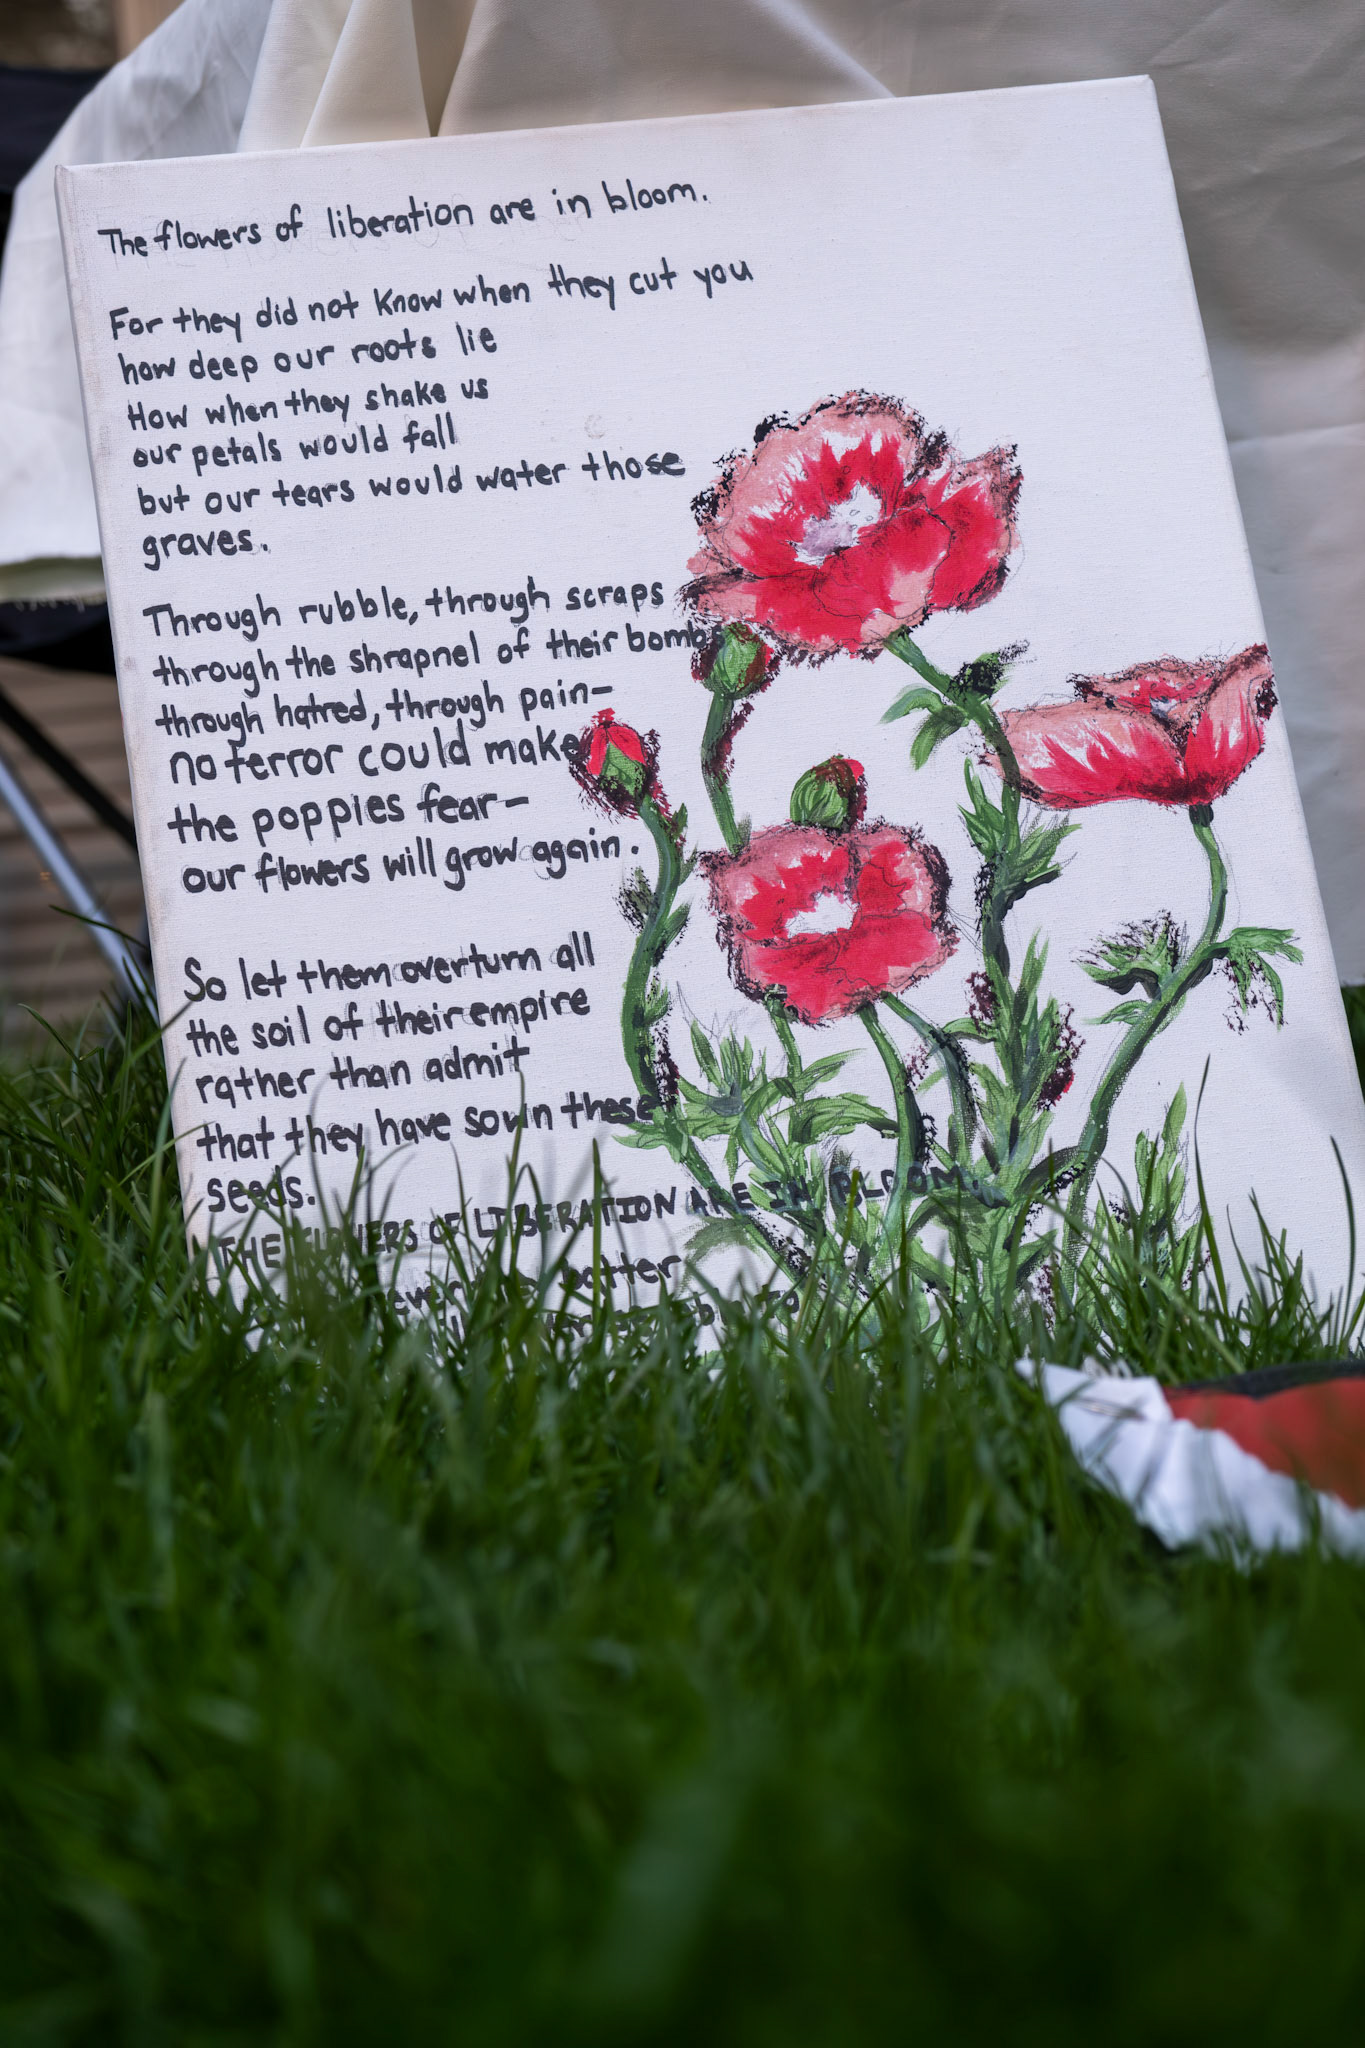 The flowers of liberation are in bloom.
For they did not know when they cut you
how deep our roots lie
How when they shake us
our petals would fall
but our tears would water those
graves.
Through rubble, through scraps
through the shrapnel of their bombs
through hatred, through pain-
no terror could make
the poppies fear-
our flowers will grow again.
So let them overturn all
the soil of their empire
rather than admit
that they have sown these
seeds.
THE FLOWERS OF LIBERATION ARE IN BLOOM.